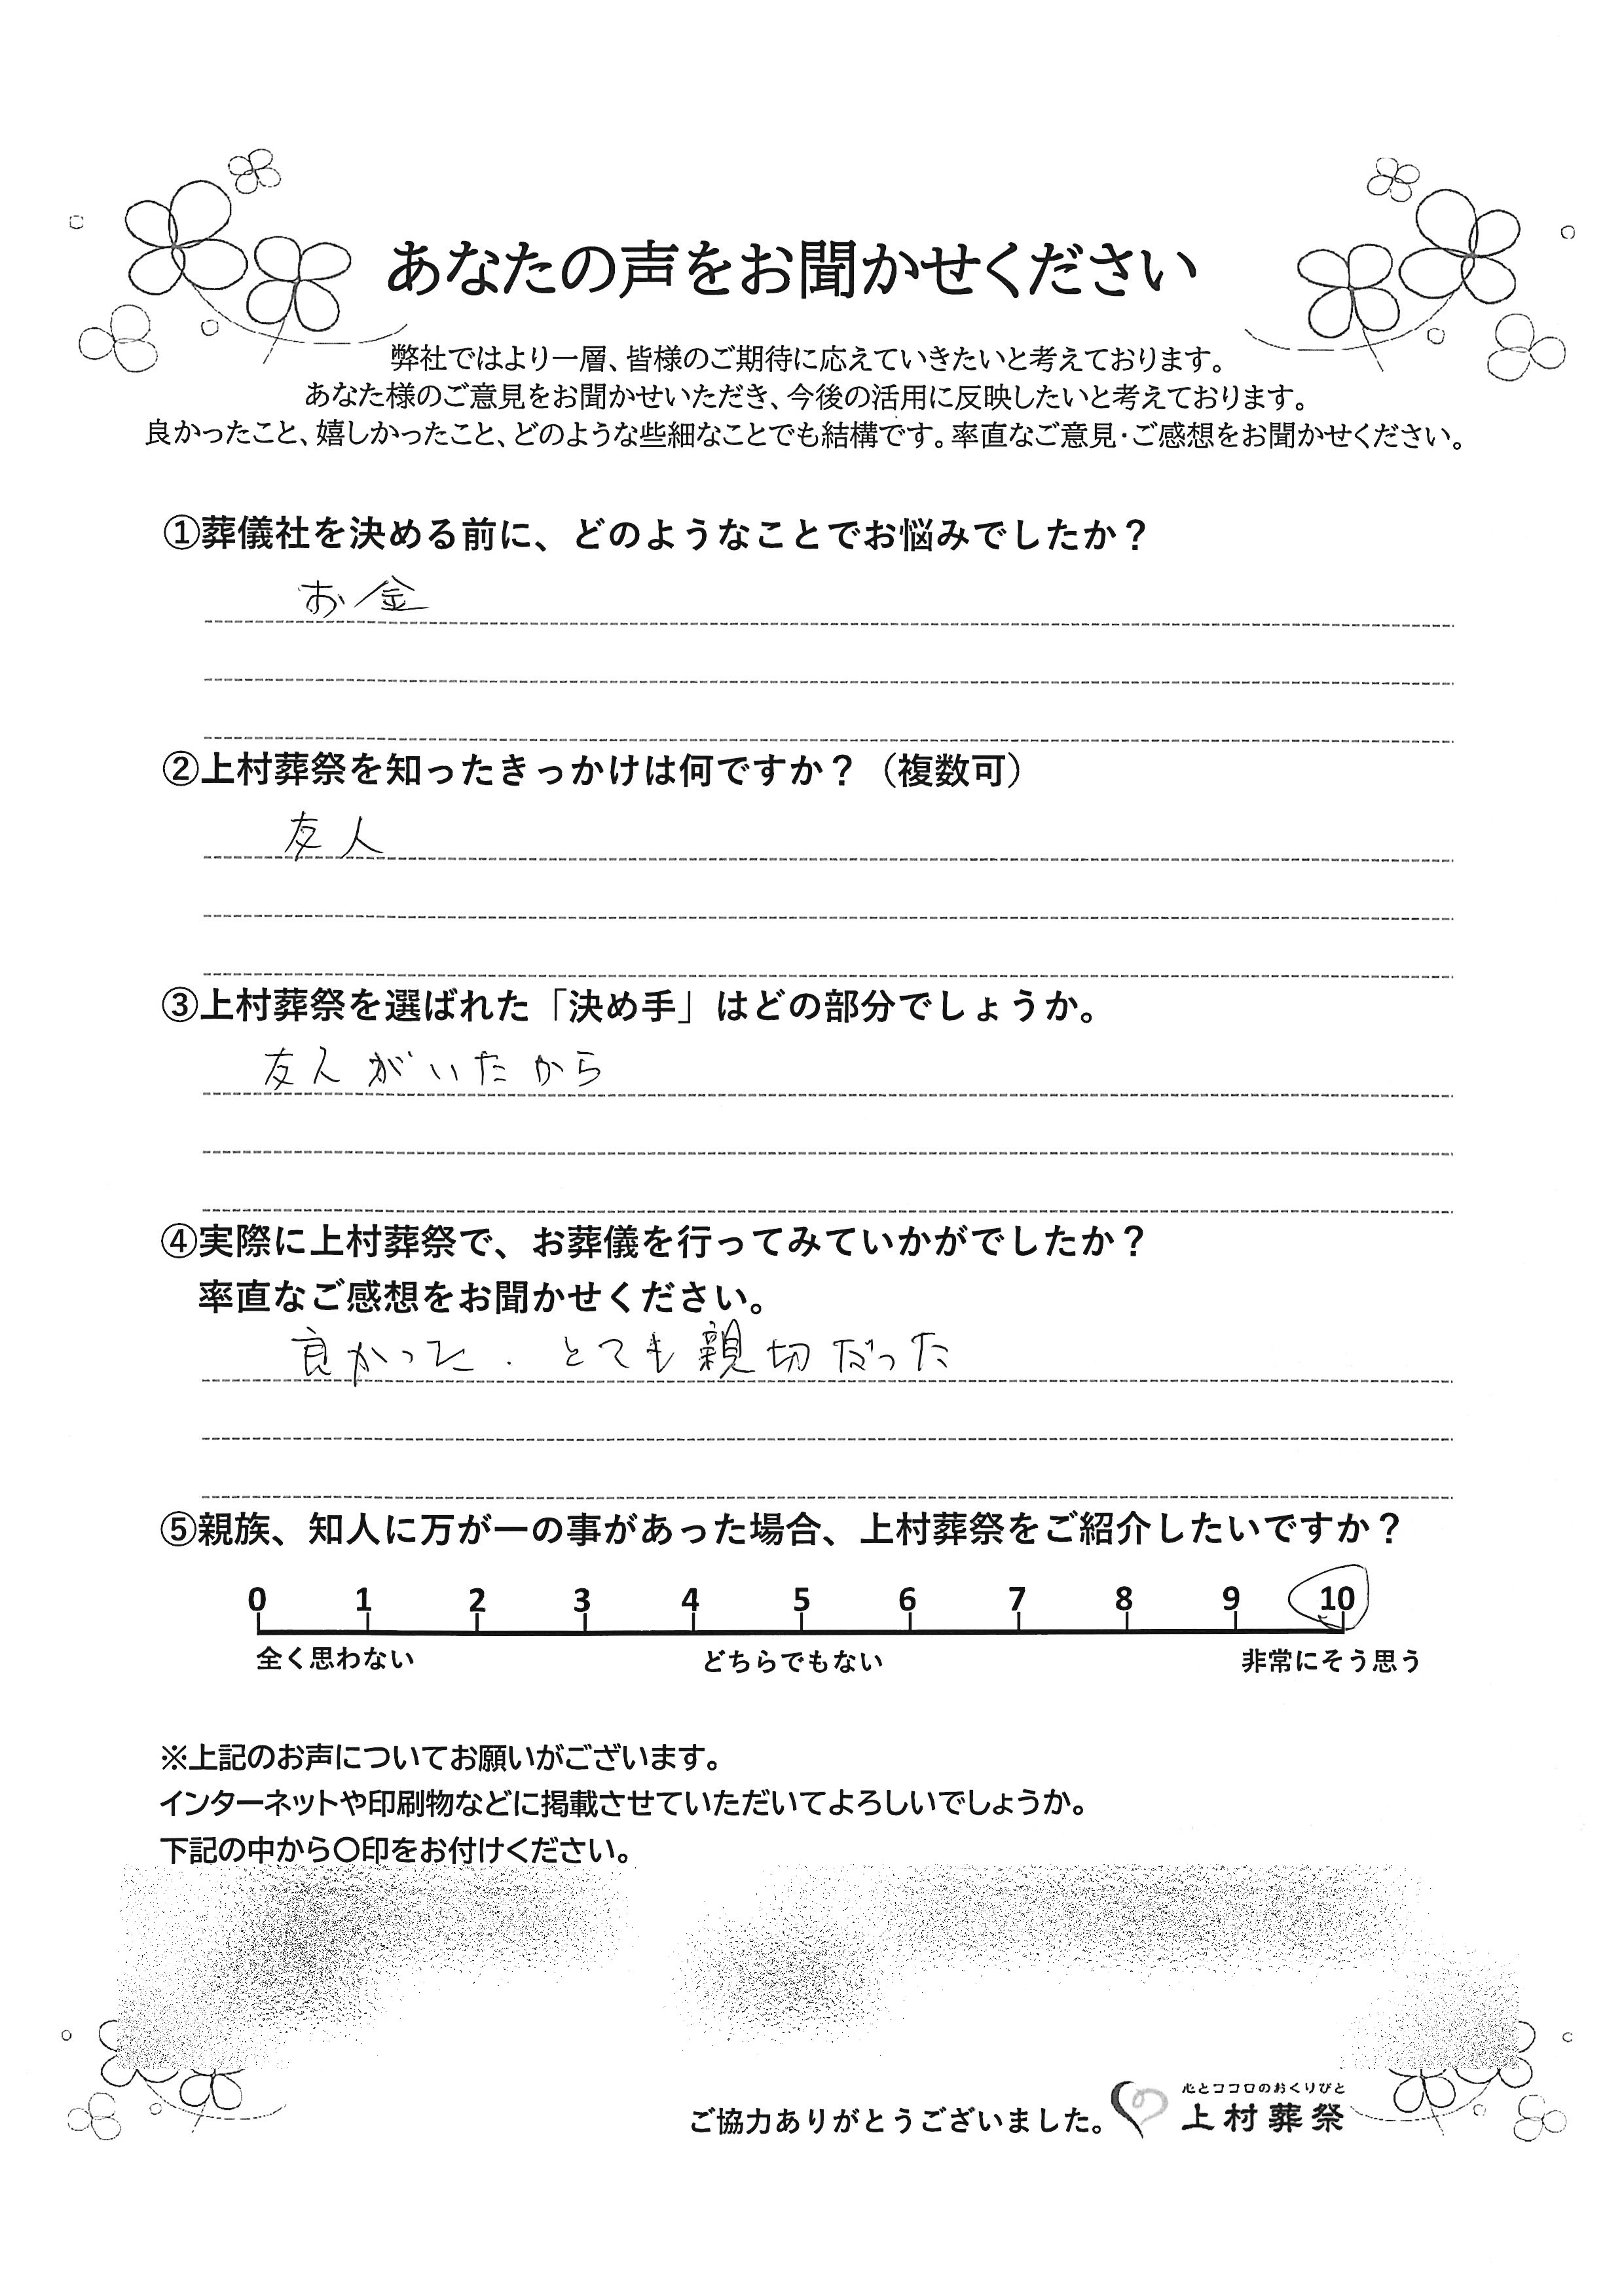 あなたの声をお聞かせください
弊社ではより一層、皆様のご期待に応えていきたいと考えております。
あなた様のご意見をお聞かせいただき、今後の活用に反映したいと考えております。
良かったこと、嬉しかったこと、どのような些細なことでも結構です。率直なご意見・ご感想をお聞かせください。
①葬儀社を決める前に、どのようなことでお悩みでしたか？
お金
②上村葬祭を知ったきっかけは何ですか？（複数可）
友人
③上村葬祭を選ばれた「決め手」はどの部分でしょうか。
友人がいたから
④実際に上村葬祭で、お葬儀を行ってみていかがでしたか？
率直なご感想をお聞かせください。
良かった．とても親切だった
⑤親族、知人に万が一の事があった場合、上村葬祭をご紹介したいですか？
0 1 2 3 4 5 6 7 8 9 10
全く思わない どちらでもない 非常にそう思う
※上記のお声についてお願いがございます。
インターネットや印刷物などに掲載させていただいてよろしいでしょうか。
下記の中から〇印をお付けください。
心とココロのおくりびと
ご協力ありがとうございました。 上村葬祭